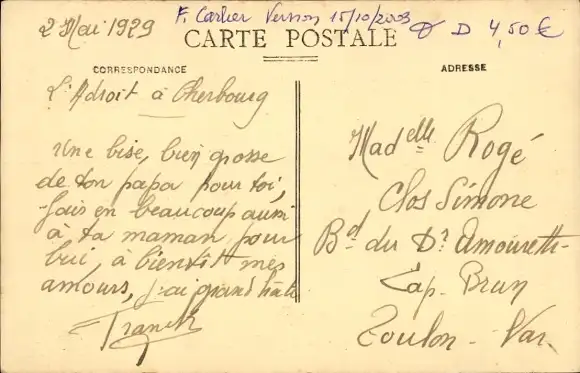 2 Mai 1929
F. Carlier Vernon 15/10/2003
D 4,50 €
CARTE POSTALE
CORRESPONDANCE
L'Adroit à Cherbourg
Une bise, bien grosse
de ton papa pour toi,
fais en beaucoup aussi
à ta maman pour
lui, à bientôt mes
amours, j'ai grand hâte
Franck
ADRESSE
Madelle Rogé
Clos Simone
Bd du Dr Amouretti
Cap. Brun
Toulon - Var.